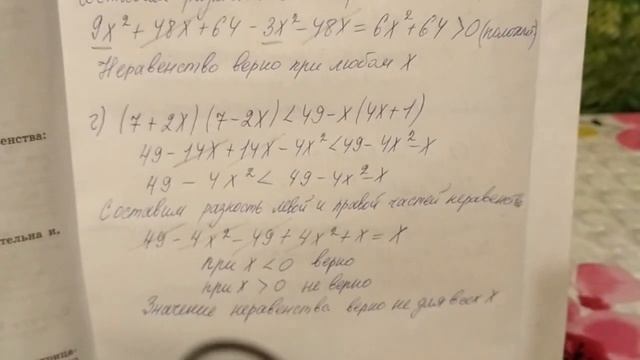 9x² + 48x + 64 - 3x² - 48x = 6x² + 64 > 0
Неравенство верно при любом x
г) (7 + 2x) (7 - 2x) < 49 - x (4x + 1)
49 - 14x + 14x - 4x² < 49 - 4x² - x
49 - 4x² < 49 - 4x² - x
Составим разность левой и правой частей
49 - 4x² - 49 + 4x² + x = x
при x < 0 верно
при x > 0 не верно
Значение неравенства верно не для всех x
енства:
тельна и.